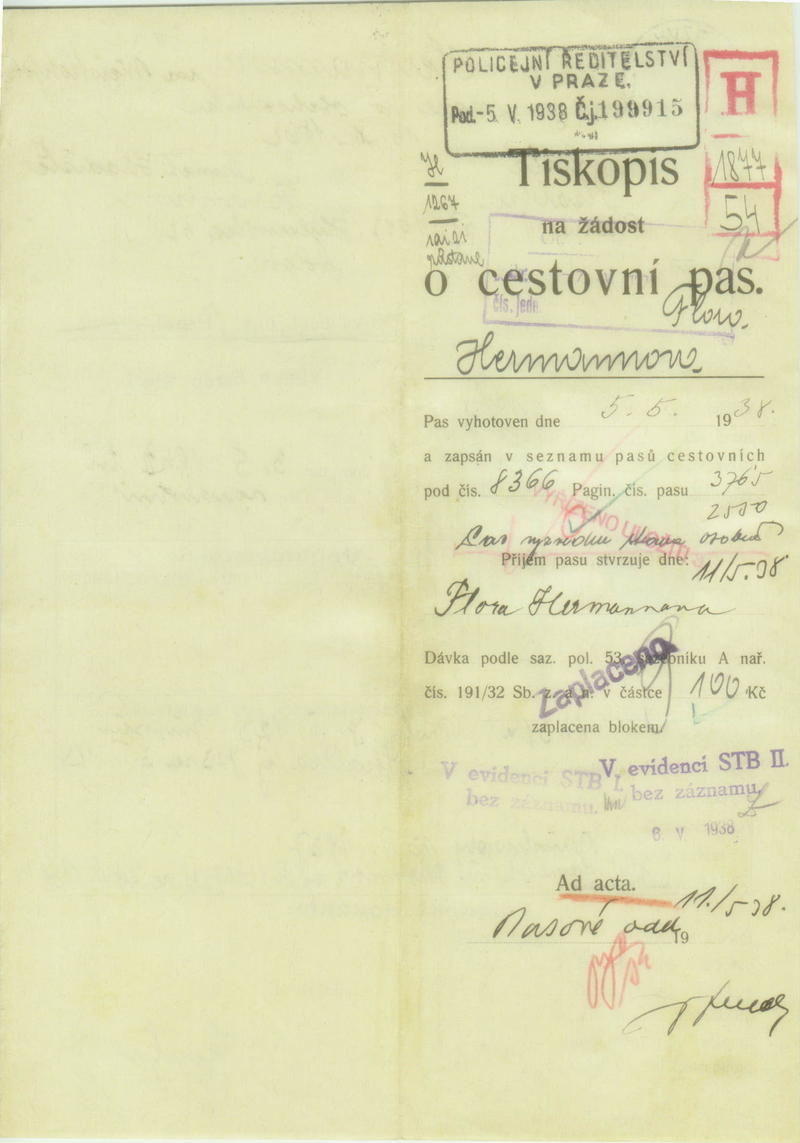 POLICEJNÍ ŘEDITELSTVÍ
V PRAZE.
Pod. -5. V. 1938 Č.j. 199915
H
1877
54
H
1267
Tiskopis
na žádost
o cestovní pas.
čís. jedn.
Flora
Hermannova
Pas vyhotoven dne 5. 5. 1938.
a zapsán v seznamu pasů cestovních
pod čís. 8366 Pagin. čís. pasu 3765
2550
VYŘÍZENO
Příjem pasu stvrzuje dne: 11/5.38
Flora Hermannova
Dávka podle saz. pol. 53, sazebníku A nař.
čís. 191/32 Sb. z. a n. v částce 100 Kč
Zaplaceno
zaplacena blokem
V evidenci STB I.
bez záznamu.
V evidenci STB II.
bez záznamu.
6 V 1938
Ad acta.
11./5 38.
Pasové odd. 19